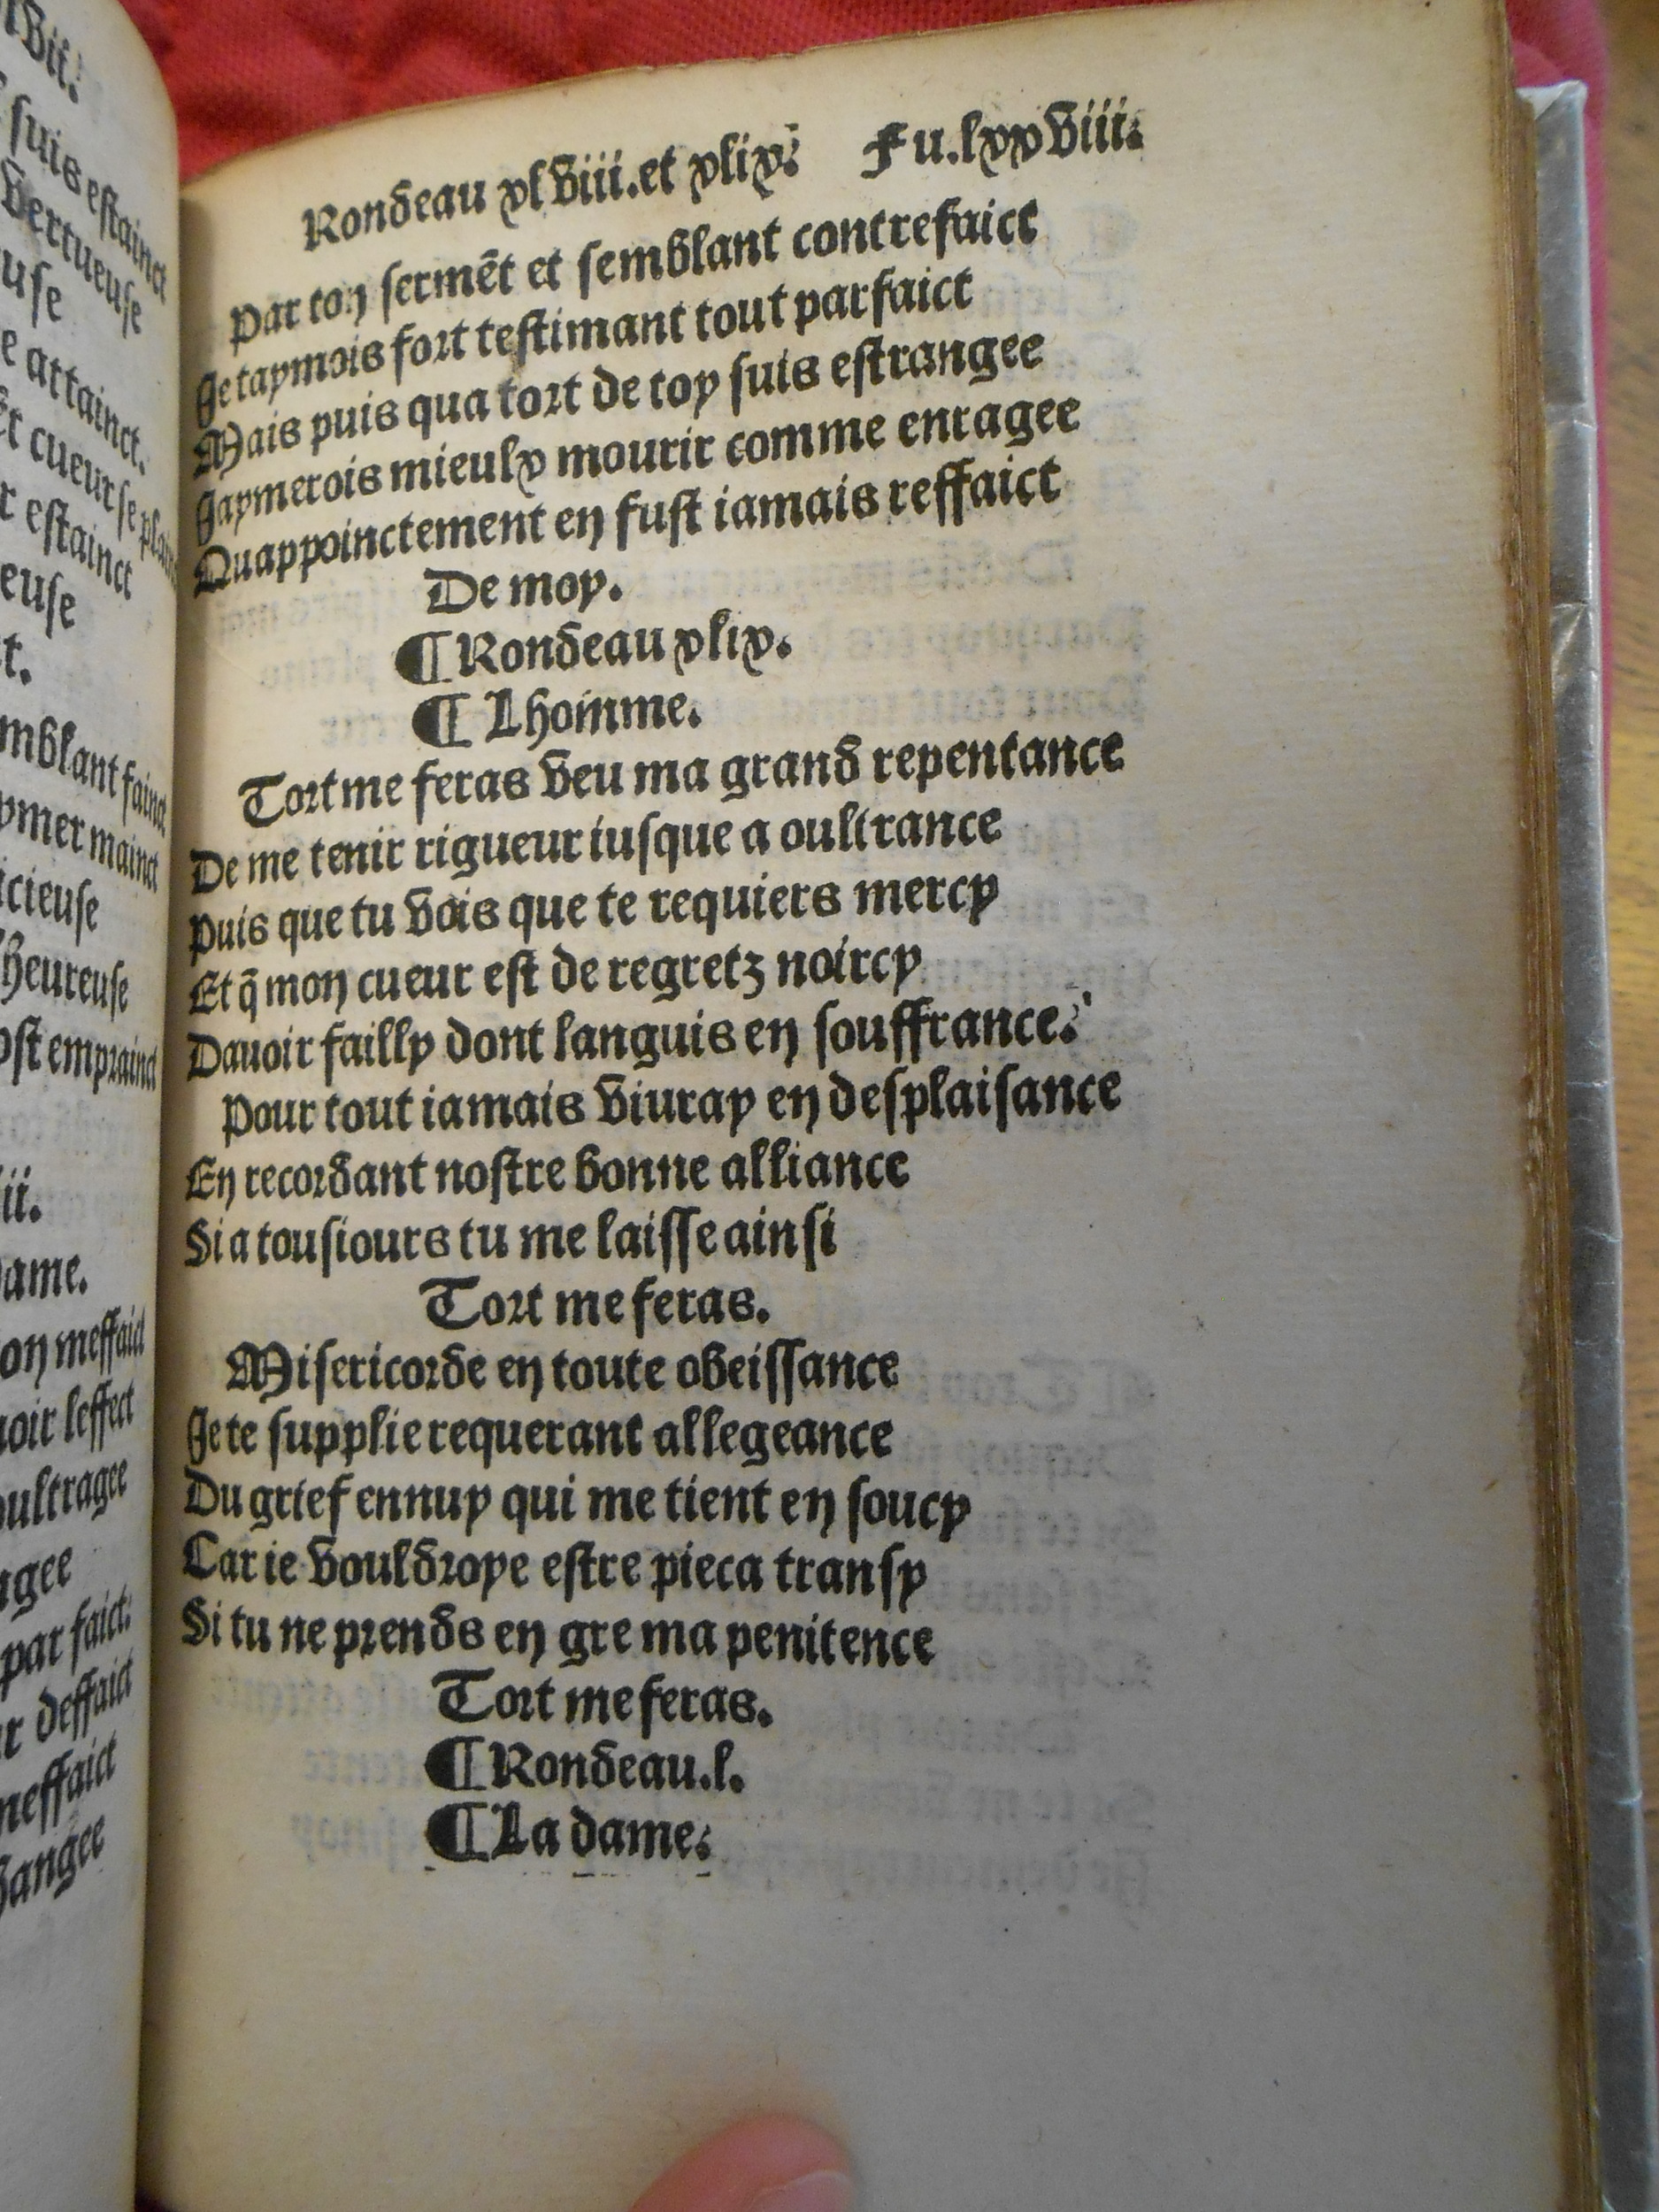 lvii.
suis estainct
vertueuse
use
e attainct.
et cueur se plain
r estainct
euse
t.
mblant fainct
ymer mainct
icieuse
lheureuse
ost emprainct
ii.
ame.
on meffaict
oir leffect
oultragee
gee
par faict:
r deffaict
meffaict
angee
Rondeau xlviii. et xlix. Fu. lxxviii.
Par ton sermēt et semblant contrefaict
Je taymois fort testimant tout parfaict
Mais puis qua tort de toy suis estrangee
Jaymerois mieulx mourir comme enragee
Quappoinctement en fust iamais reffaict
De moy.
¶ Rondeau xlix.
¶ Lhomme.
Tort me feras veu ma grand repentance
De me tenir rigueur iusque a oultrance
Puis que tu vois que te requiers mercy
Et q̄ mon cueur est de regretz noircy
Dauoir failly dont languis en souffrance.
Pour tout iamais viuray en desplaisance
En recordant nostre bonne alliance
Si a tousiours tu me laisse ainsi
Tort me feras.
Misericorde en toute obeissance
Je te supplie requerant allegeance
Du grief ennuy qui me tient en soucy
Car ie vouldroye estre pieca transy
Si tu ne prends en gre ma penitence
Tort me feras.
¶ Rondeau. l.
¶ La dame.